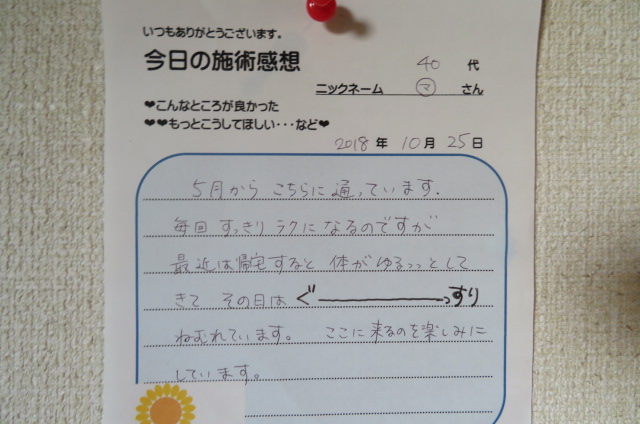 いつもありがとうございます。
今日の施術感想
40 代
ニックネーム マ さん
❤こんなところが良かった
❤❤もっとこうしてほしい・・・など❤
2018 年 10 月 25 日
5月から こちらに 通っています.
毎回 すっきり ラクに なるのですが
最近は帰宅すると 体が ゆるっっとして
きて その日は ぐ―――――っすり
ねむれています。 ここに来るのを楽しみに
しています。